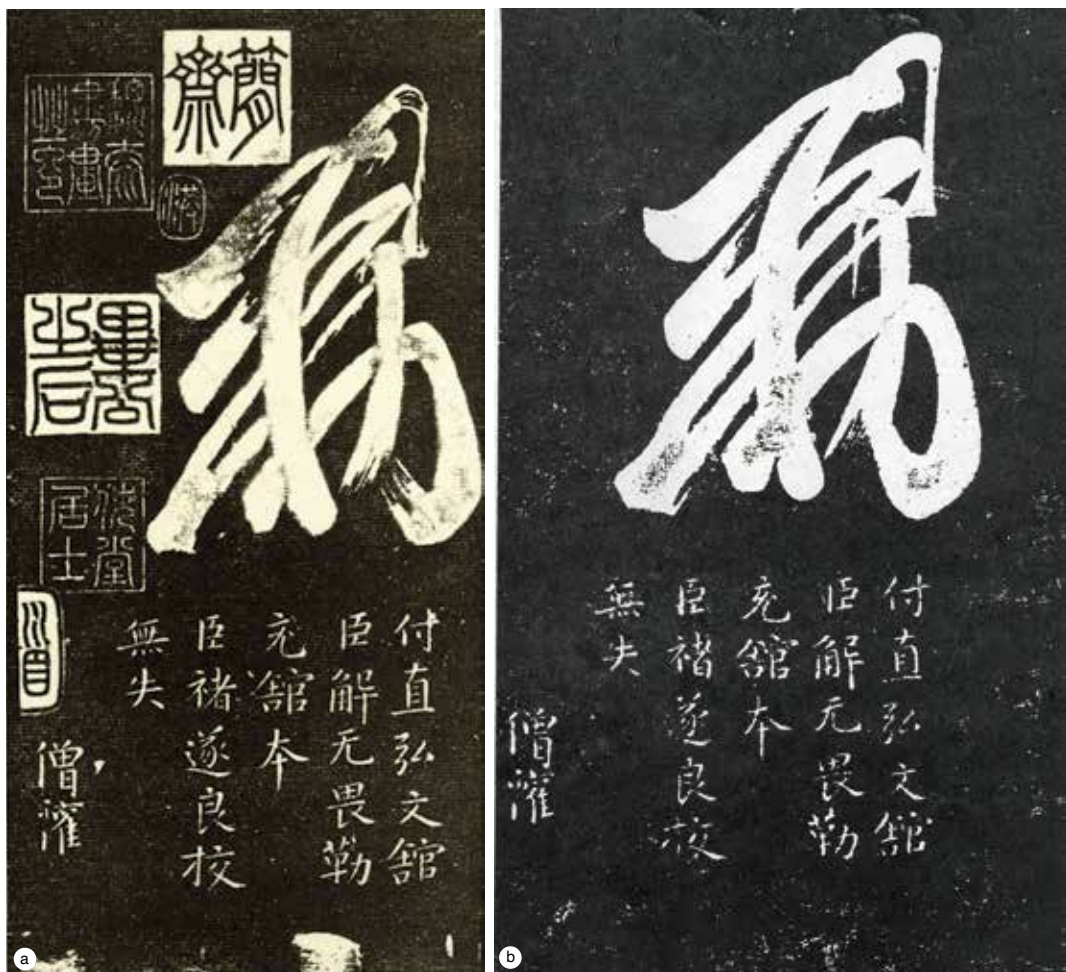 簡齋
畢公之后
居士
敕
付直弘文舘
臣解无畏勒
充舘本
臣褚遂良校
無失
僧權
a
敕
付直弘文舘
臣解无畏勒
充舘本
臣褚遂良校
無失
僧權
b